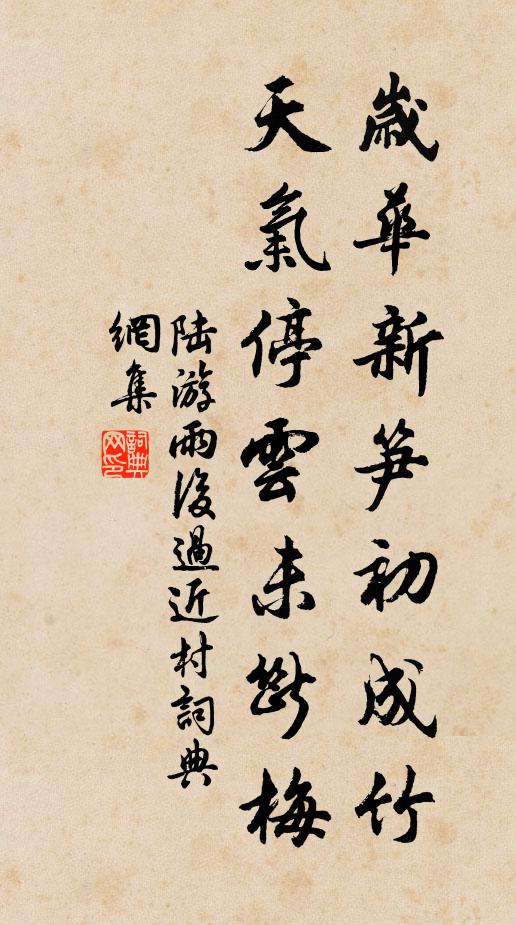 歲華新笋初成竹
天氣停雲未斷梅
陆游雨後過近村詞典
網集
詞典网印